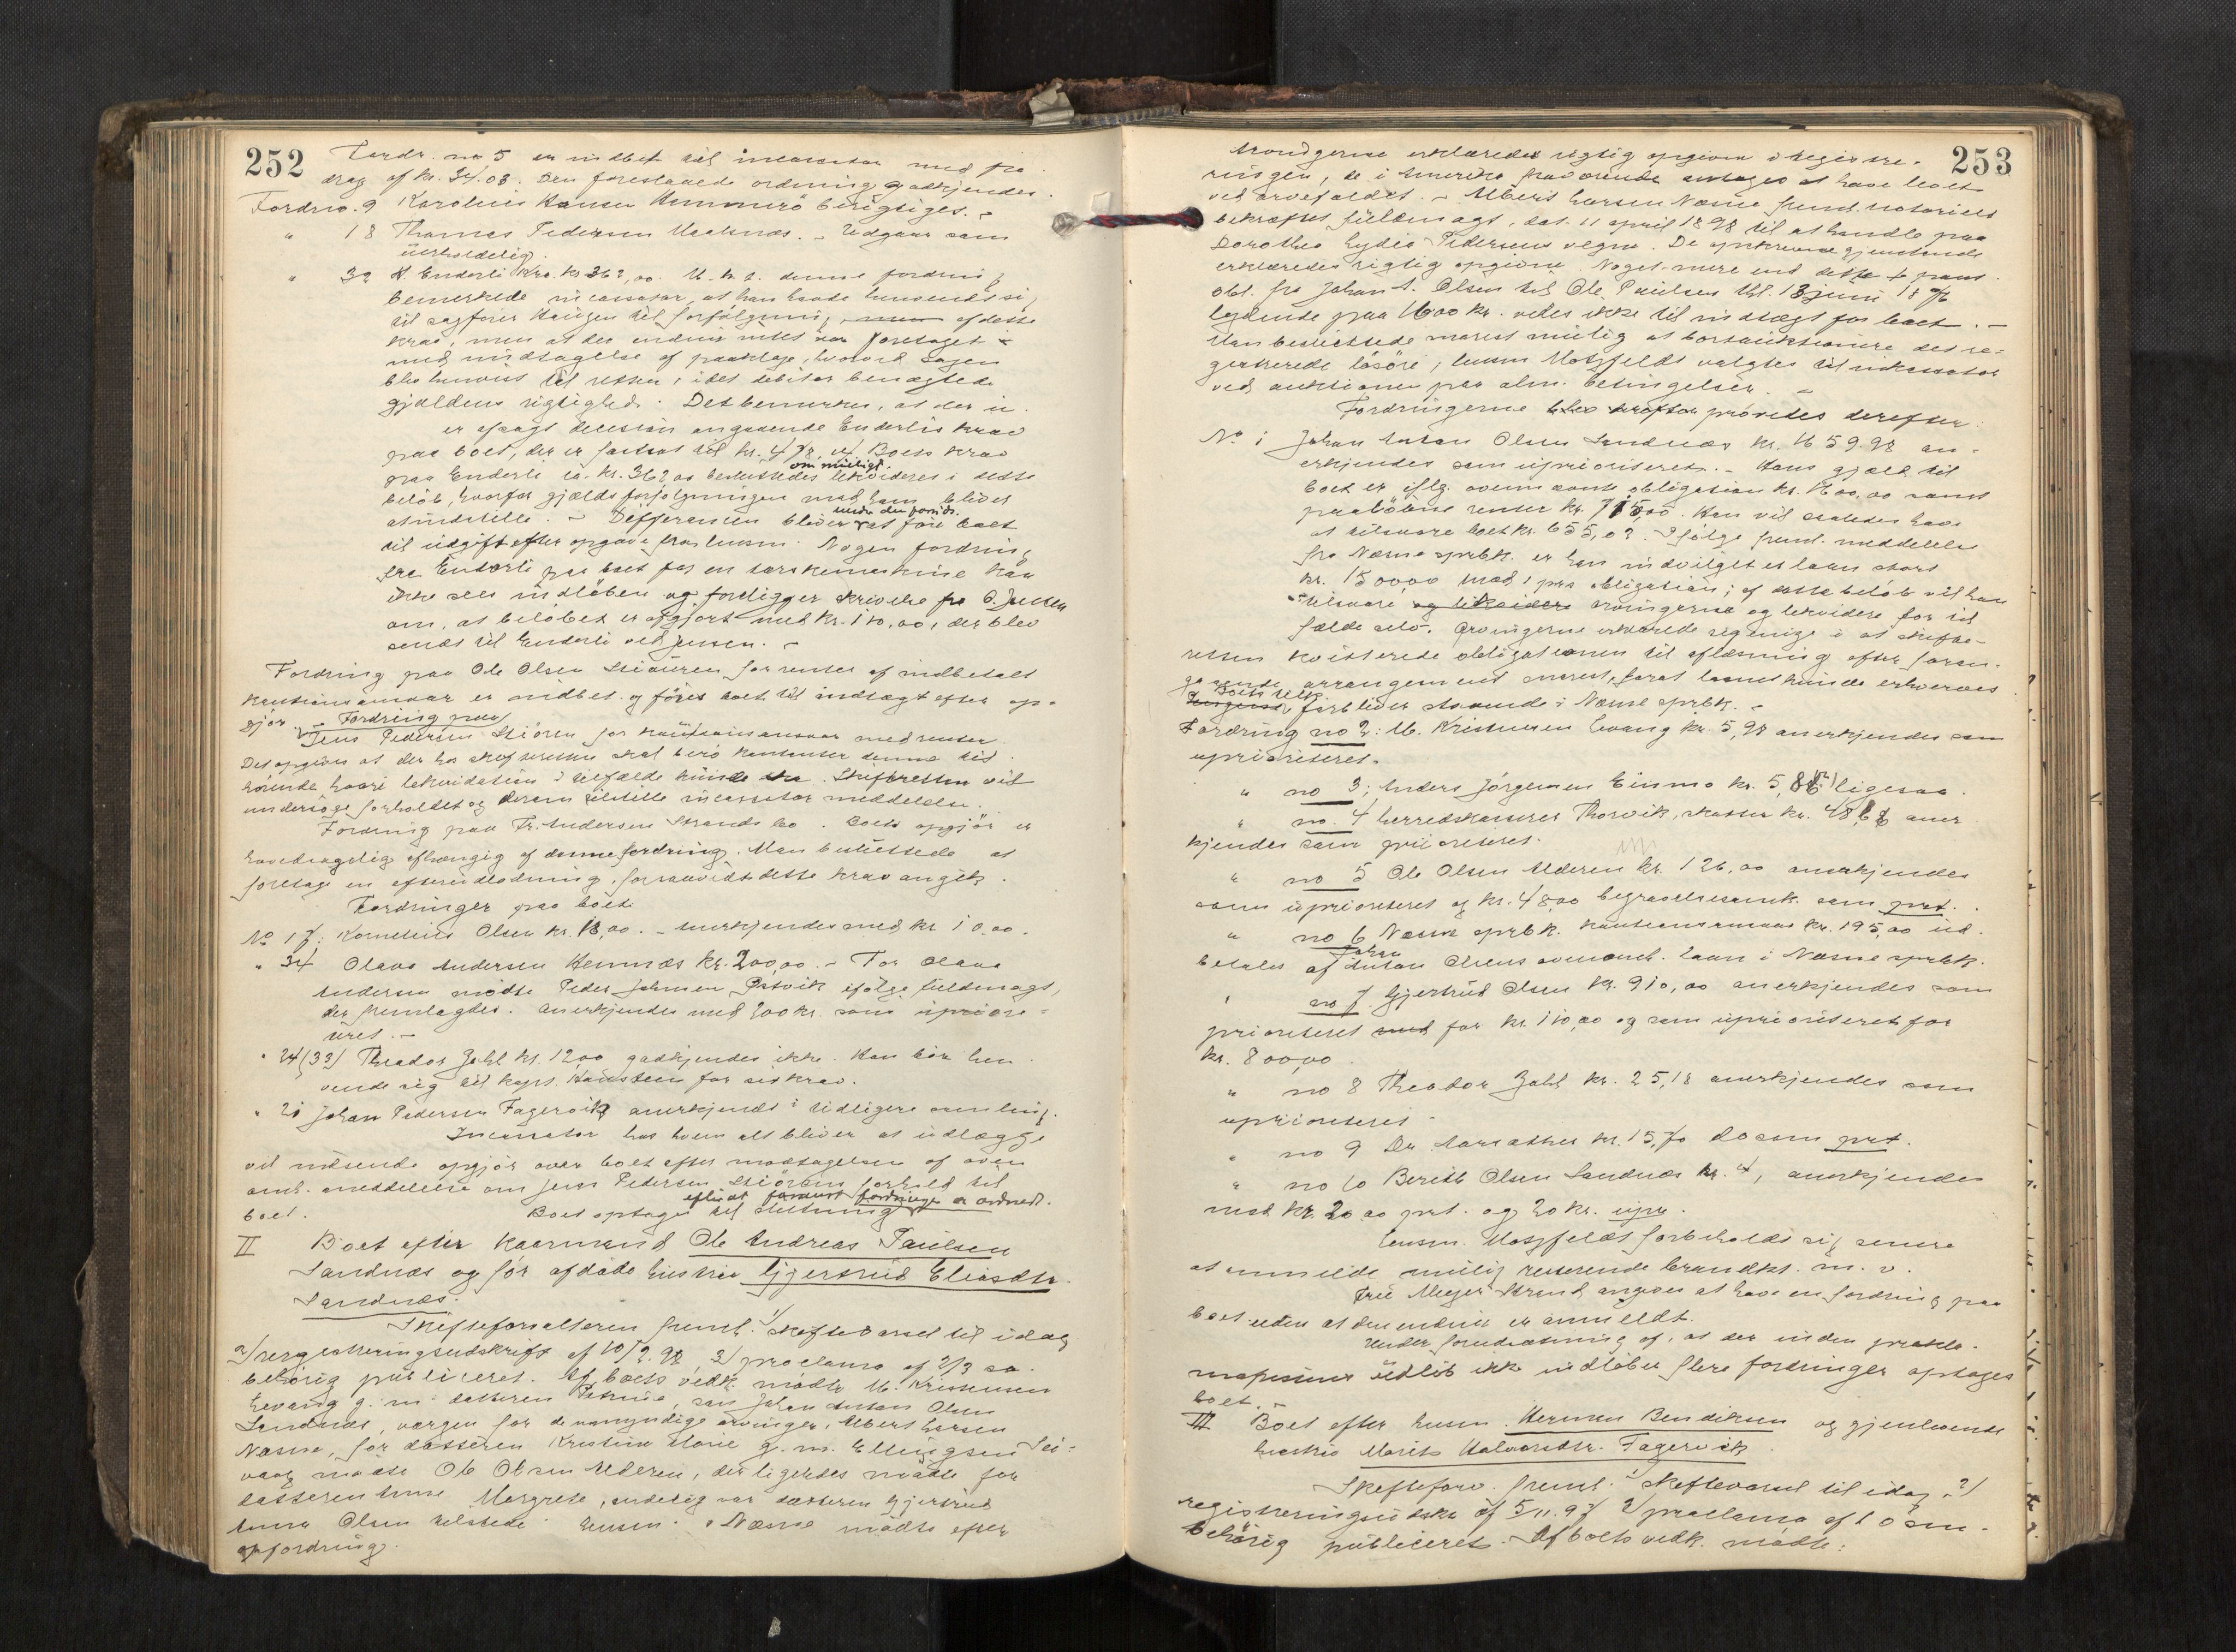 252
Fordr. no 5 er indbet. til incassator med fra
drag af kr. 34.03. Den foreslaaede ordning godkjendes.
Fordr. no. 9 Karolius Hansen Hemmerö berigtiges. -
" 18 Thomas Pedersen Maalsnæs. - Udgaar som
uerholdelig.
" 32 H Enderli Kra. kr 362,00. U. k. s. denne fordring
bemerkede incassator, at han havde henvendt sig
til sagfører Haugen til forfølgning af dette
krav, men at der endnu intet var foretaget
med undtagelse af paaklage, hvorved sagen
blev henvist til retten, idet debitor benægtede
gjældens rigtighed. Det bemerkes, at der u.
er afsagt decision angaaende Enderlis krav
paa boet, der er fastsat til kr. 478,04. Boets krav
paa Enderli ca. kr. 362,00 besluttedes om muligt likvideres i dette
beløb, hvorfor gjældsforfølgningen mod ham bliver
at indstille. - Differansen bliver under den foruds. at føre boet
til udgift efter opgave fra lensm. Nogen fordring
fra Enderli paa boet for en tærskemaskine kan
ikke sees indløben og foreligger skrivelse fra C. Jensen
om, at beløbet er opgjort med kr. 110,00, der blev
sendt til Enderli ved Jensen. -
Fordring paa Ole Olsen Stiauren for renter af indbetalt
kautionsansvar er indbet. og føres boet til indtægt efter op-
gjør. - Fordring paa
Jens Pedersen Stiören for kautionsansvar med renter.
Det opgives at der hos skifteretten skal bero kontanter denne til-
hørende hvori likvidation i tilfælde kunde ske. Skifteretten vil
undersøge forholdet og derom tilstille incassator meddelelse.
Fordring paa Fr. Andersen Strands bo. Boets opgjör er
hovedsagelig afhængig af denne fordring. Man besluttede at
foretage en efterudlodning, forsaavidt dette krav angik.
Fordringer paa boet.
No 17. Kornelius Olsen kr. 18,00. - Anerkjendes med kr 10.00.
" 34 Olava Andersen Hemnæs kr. 200,00. - For Olava
Andersen mødte Peder Johnsen Østvik ifølge fuldmagt,
der fremlagdes. Anerkjendes med 200 kr. som upriori-
teret. -
" 24 (33) Theodor Zahl kr. 12,00 godkjendes ikke. Han bør hen-
vende sig til kapt. Haustein for sit krav.
" 21 Johan Pedersen Fagervik anerkjendt i tidligere samling.
Incassator hos hvem alt bliver at udlægge
vil indsende opgjör over boet efter modtagelsen af oven
omh. meddelelse om Jens Pedersen Stiörens forhold til
boet. Boet optages til slutning efter at fordringer er ordnede.
II Boet efter kaarmand Ole Andreas Paulsen
Sandnæs og før afdøde hustru Gjertrud Eliasdtr.
Sandnæs.
Skifteforvalteren freml. 1/ skiftevarsel til idag
2/ registreringsudskrift af 10/2. 98, 3/ proclama af 2/3 s.a.
behørig publiceret. Af boets vedk. mødte M. Kristensen
Levang g. m. datteren Petrine, søn Johan Anton Olsen
Sandnæs, værgen for de umyndige arvinger, Albert Larsen
Næsna, for datteren Kristine Marie g. m. Ellingsen Sei-
vaag mødte Ole Olsen Alderen, der ligeledes mødte for
datteren Anne Margrete, endelig var datteren Gjertrud
Anna Olsen tilstede. Lensm. i Næsne mødte efter
opfordring.
253
Arvingerne erklæredes rigtig opgivne i registre-
ringen, de i Amerika fraværende antages at have levet
ved arvefaldet. - Albert Larsen Næsne freml. notorielt
bekræftet fuldmagt, dat. 11 april 1898 til at handle paa
Dorothea Lydia Pedersens vegne. De opskrevne gjenstande
erklæredes rigtig opgivne. Noget mere end dette + pant
obl. fra Johan A. Olsen til Ole Paulsen thl. 13 juni 1876
lydende paa 1600 kr. vides ikke til indtægt for boet. -
Man besluttede snarest mulig at bortauktionere det re-
gistrerede løsøre; lensm Motzfeldt valgtes til inkassator
ved auktionen paa alm. betingelser. -
Fordringerne prøvedes derefter:
No 1 Johan Anton Olsen Sandnæs kr. 1659.98 an-
erkjendes som uprioriteret. - Hans gjæld til
boet er iflg. ovennævnte obligation kr. 1600,00 samt
paaløbne renter kr. 715,00. Han vil saaledes have
at tilsvare boet kr. 655,02. - Ifølge freml. meddelelse
fra Næsne sprbk. er han indvilget et laan stort
kr. 1500,00 mod 1 pr. obligation; af dette beløb vil han
tilsvare arvingerne og likvidere for sit
fælde selv. Arvingerne erklærede sig enige i at skifte-
retten kvitterede obligationen til aflæsning efter foran-
gaaende arrangement snarest, forat laanet kunde erhverves
Boets tilk. forbliver staaende i Næsne sprbk. -
Fordring no 2: M. Kristensen Levang kr. 5,98 anerkjendes som
uprioriteret.
" no 3: Anders Jørgensen Einmo kr. 5,85 ligesaa.
" no. 4 herredskasserer Thorvik, skatter kr. 48,68 aner-
kjendes som prioriteret.
" no 5 Ole Olsen Alderen kr. 126,00 anerkjendes
som uprioriteret og kr. 48,00 begravelsesomk. som prt.
" no 6 Næsne sprbk. kautionsansvar kr. 195,00 ud-
betales af Johan Anton Olsens ovenomh. laan i Næsne sprbk.
" no 7. Gjertrud Olsen kr. 910,00 anerkjendes som
prioriteret for kr. 110,00 og som uprioriteret for
kr. 800,00.
" no 8 Theodor Zahl kr. 25,18 anerkjendes som
uprioriteret -
" no 9 Dr. Aarsæther kr. 15,70 do som prt.
" no 10 Berith Olsen Sandnæs kr. 4, anerkjendes
med kr. 20.00 prt. og 20 kr. upr.
Lensm. Motzfeldt forbeholdt sig senere
at anmelde mulig resterende brandkt. m. v.
Fru Meyer Strand angives at have en fordring paa
boet uden at den endnu er anmeldt.
Under forudsætning af, at der inden prokla-
mafristens udløb ikke indløber flere fordringer optages
boet. -
III Boet efter husm. Herman Bendiksen og gjenlevende
hustru Marit Halvorsdtr. Fagervik
Skifteforv. freml. 1/ skiftevarsel til idag, 2/
registreringsudskr. af 5/11. 97 3/ proclama af 10 s.m.
behörig publiceret. Af boets vedk. mødte: